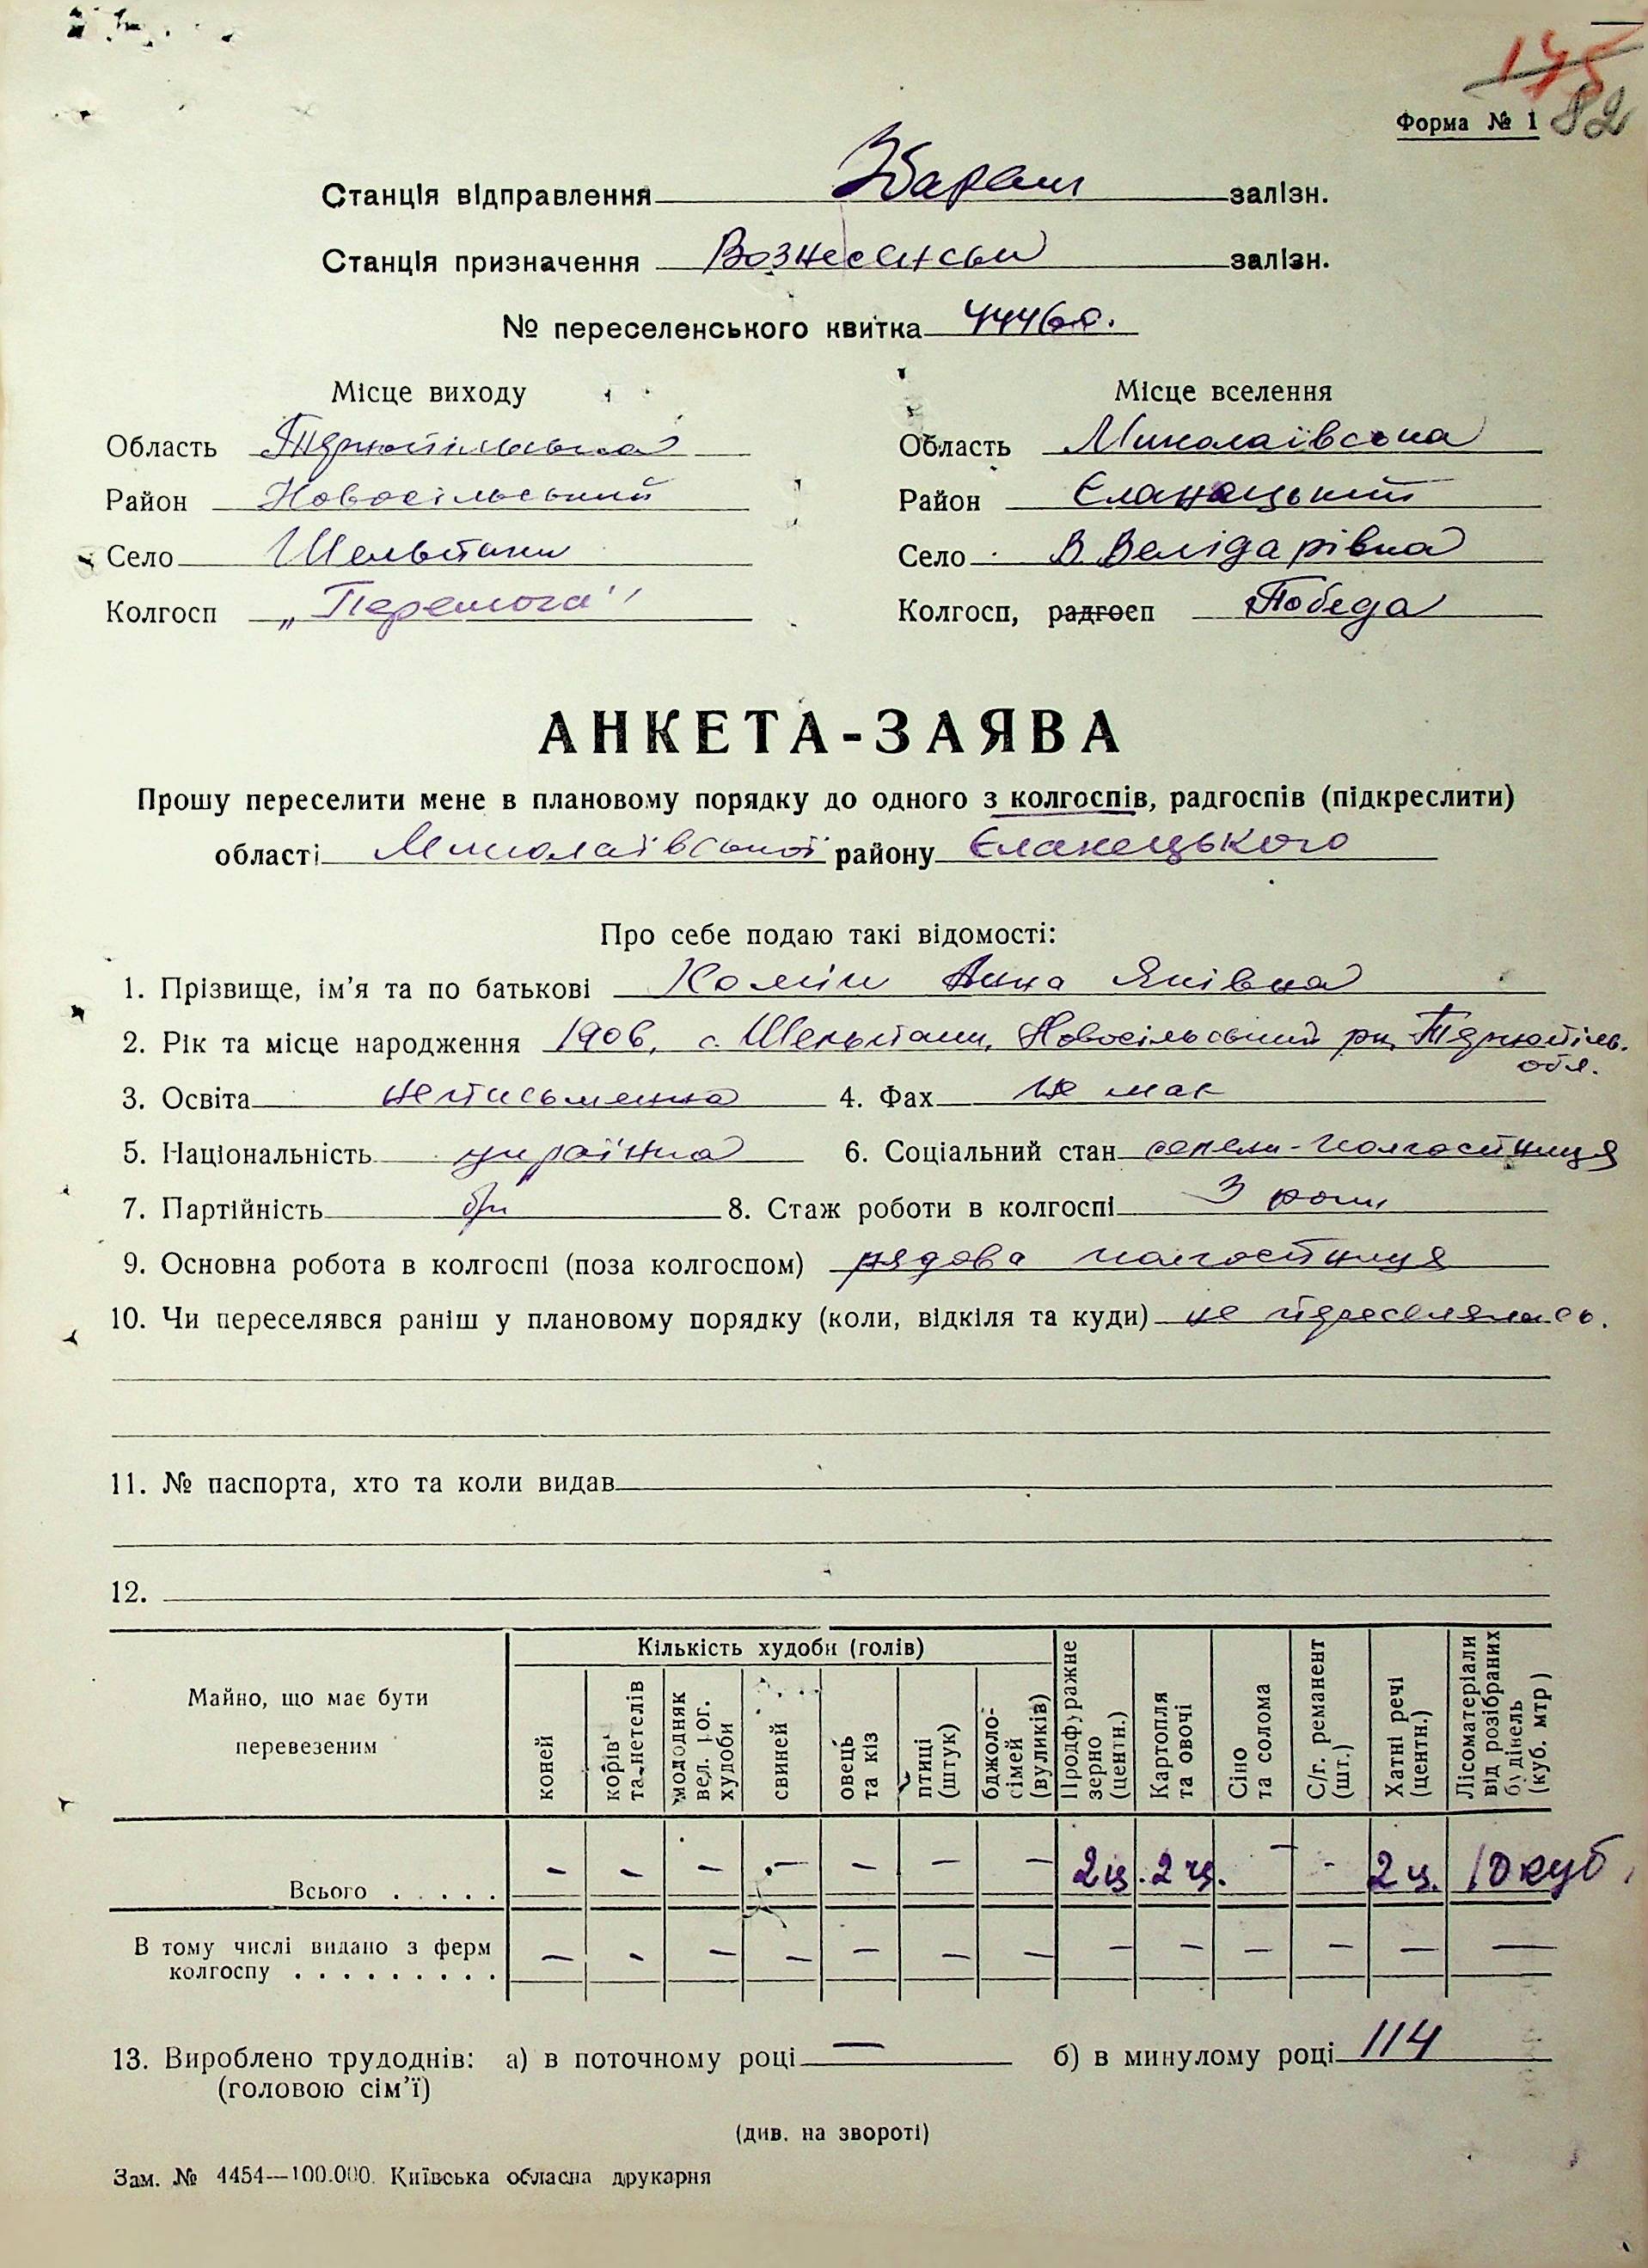 145
82
Форма № 1
Станція відправлення Збараж залізн.
Станція призначення Вознесенськ залізн.
№ переселенського квитка
Місце виходу Місце вселення
Область Тернопільська Область Миколаївська
Район Новосільський Район Єланецький
Село Шельпаки Село В. Солідарівка
Колгосп „Перемога" Колгосп, радгосп Побєда
АНКЕТА-ЗАЯВА
Прошу переселити мене в плановому порядку до одного з колгоспів, радгоспів (підкреслити)
області Миколаївської району Єланецького
Про себе подаю такі відомості:
1. Прізвище, ім'я та по батькові Анна Яківна
2. Рік та місце народження 1906, с. Шельпаки, Новосільський р-н, Тернопіль. обл.
3. Освіта неписьменна 4. Фах не має
5. Національність українка 6. Соціальний стан селян-колгоспниця
7. Партійність б/п 8. Стаж роботи в колгоспі 3 роки
9. Основна робота в колгоспі (поза колгоспом) рядова колгоспниця
10. Чи переселявся раніш у плановому порядку (коли, відкіля та куди) не переселялась.
11. № паспорта, хто та коли видав
12.
Майно, що має бути перевезеним
Кількість худоби (голів)
коней
корів та нетелів
молодняк вел. рог. худоби
свиней
овець та кіз
птиці (штук)
бджоло-сімей (вуликів)
Продфуражне зерно (центн.)
Картопля та овочі
Сіно та солома
С/г. реманент (шт.)
Хатні речі (центн.)
Лісоматеріали від розібраних будівель (куб. мтр)
Всього . . . . . — — — — — — — 2ц. 2ц. — - 2ц. 10 куб.
В тому числі видано з ферм
колгоспу . . . . . . . . . — - — — — — — — — — — — —
13. Вироблено трудоднів: а) в поточному році — б) в минулому році 114
(головою сім'ї)
(див. на звороті)
Зам. № 4454—100.000. Київська обласна друкарня